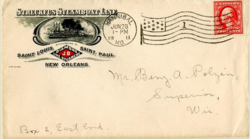 STRECKFUS STEAMBOAT LINE
SAINT LOUIS
SAINT PAUL
NEW ORLEANS.
JUN 26
1-PM
MO.
1
Mr. Benj. A. Polzin
Superior,
Wis.
Box 2, East End.